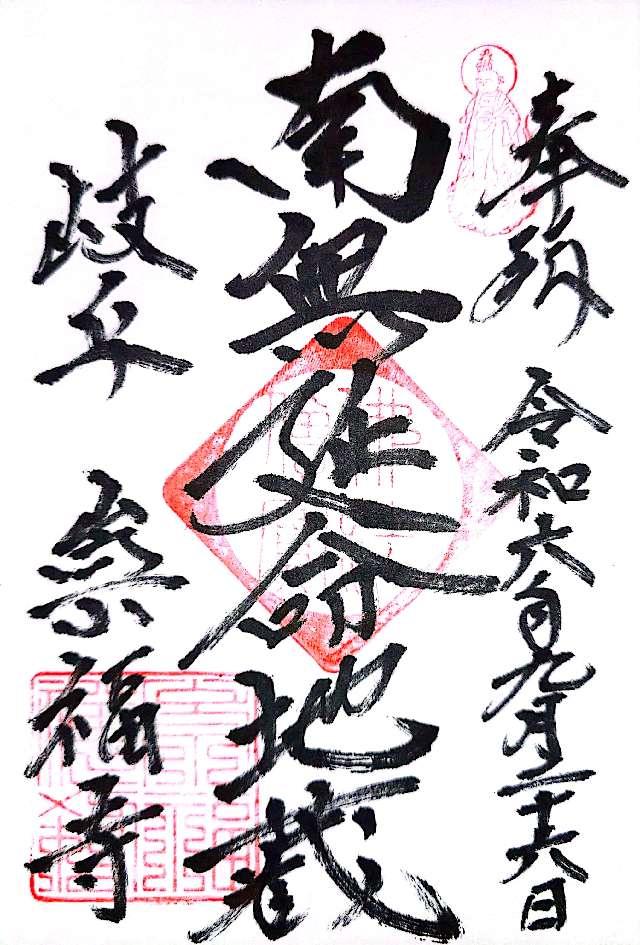 奉拝
令和六年九月二十六日
南無延命地蔵
岐阜
崇福寺